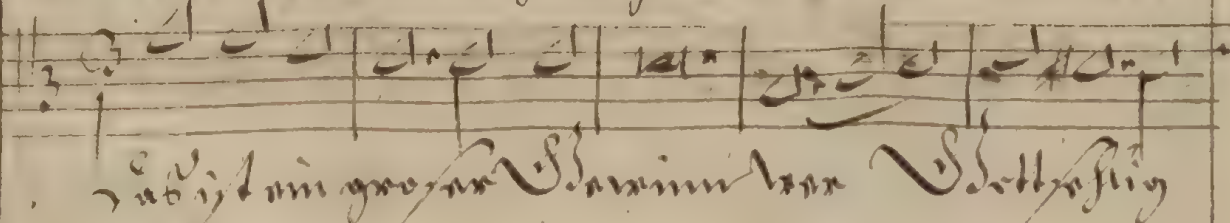 Daß ist ein groser Gewinn wer Gottsehlig